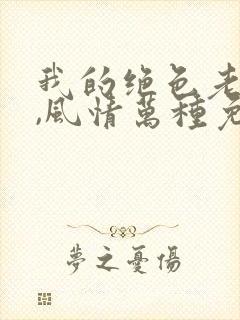 我的绝色老
,風情萬種免
夢之憂傷